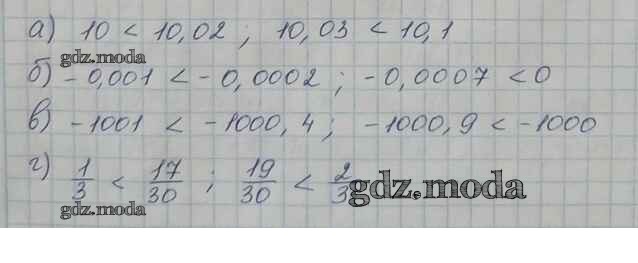 а) 10 < 10,02 ; 10,03 < 10,1
gdz.moda
б) -0,001 < -0,0002 ; -0,0007 < 0
в) -1001 < -1000,4 ; -1000,9 < -1000
г) 1/3 < 17/30 ; 19/30 < 2/3
gdz.moda
gdz.moda